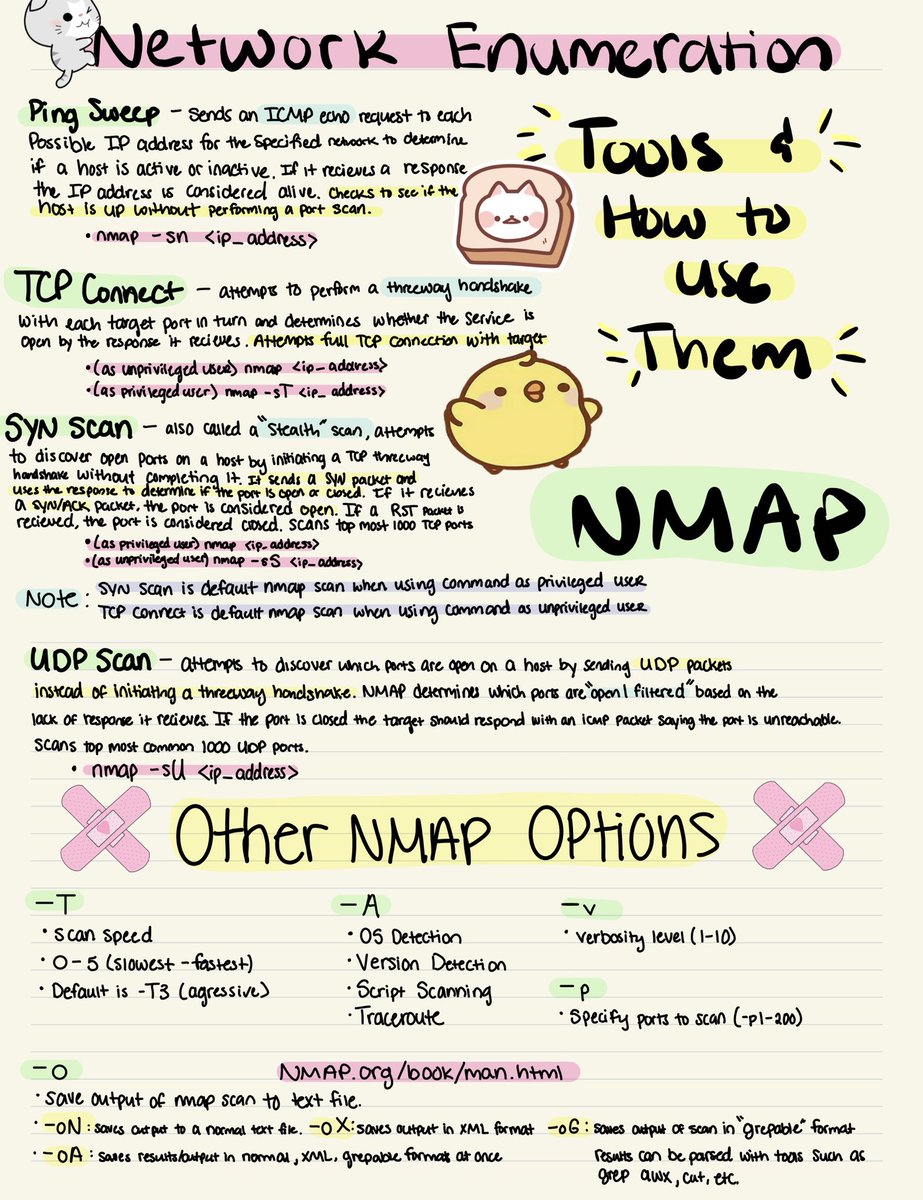 Network Enumeration
Tools &
How to
Use
Them
NMAP
Ping Sweep - sends an ICMP echo request to each
possible IP address for the specified network to determine
if a host is active or inactive. If it recieves a response
the IP address is considered alive. Checks to see if the
host is up without performing a port scan.
• nmap -sn <ip_address>
TCP Connect - attempts to perform a threeway handshake
with each target port in turn and determines whether the service is
open by the response it recieves. Attempts full TCP connection with target
• (as unprivileged user) nmap <ip_address>
• (as privileged user) nmap -sT <ip_address>
SYN Scan - also called a "stealth" scan, attempts
to discover open ports on a host by initiating a TCP threeway
handshake without completing it. It sends a SYN packet and
uses the response to determine if the port is open or closed. If it recieves
a SYN/ACK packet, the port is considered open. If a RST packet is
recieved, the port is considered closed. Scans top most 1000 TCP ports
• (as privileged user) nmap <ip_address>
• (as unprivileged user) nmap -sS <ip_address>
Note: SYN Scan is default nmap scan when using command as privileged user
TCP Connect is default nmap scan when using command as unprivileged user
UDP Scan - attempts to discover which ports are open on a host by sending UDP packets
instead of initiating a threeway handshake. NMAP determines which ports are "open | filtered" based on the
lack of response it recieves. If the port is closed the target should respond with an icmp packet saying the port is unreachable.
Scans top most common 1000 UDP ports.
• nmap -sU <ip_address>
Other NMAP Options
-T
• Scan speed
• 0-5 (slowest - fastest)
• Default is -T3 (agressive)
-A
• OS Detection
• Version Detection
• Script Scanning
• Traceroute
-v
• verbosity level (1-10)
-p
• Specify ports to scan (-p1-200)
-o
NMAP.org/book/man.html
• Save output of nmap scan to text file.
• -oN: saves output to a normal text file. -oX: saves output in XML format -oG: saves output of scan in "grepable" format
results can be parsed with tools such as
grep awx, cut, etc.
• -oA: saves results/output in normal, XML, grepable formats at once